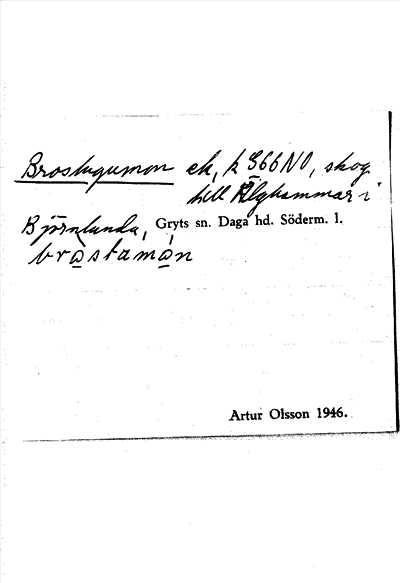 Brostugumon ek, k S66NO, skog
till Älghammar i
Björnlunda, Gryts sn. Daga hd. Söderm. l.
brɑstamɑ́n
Artur Olsson 1946.